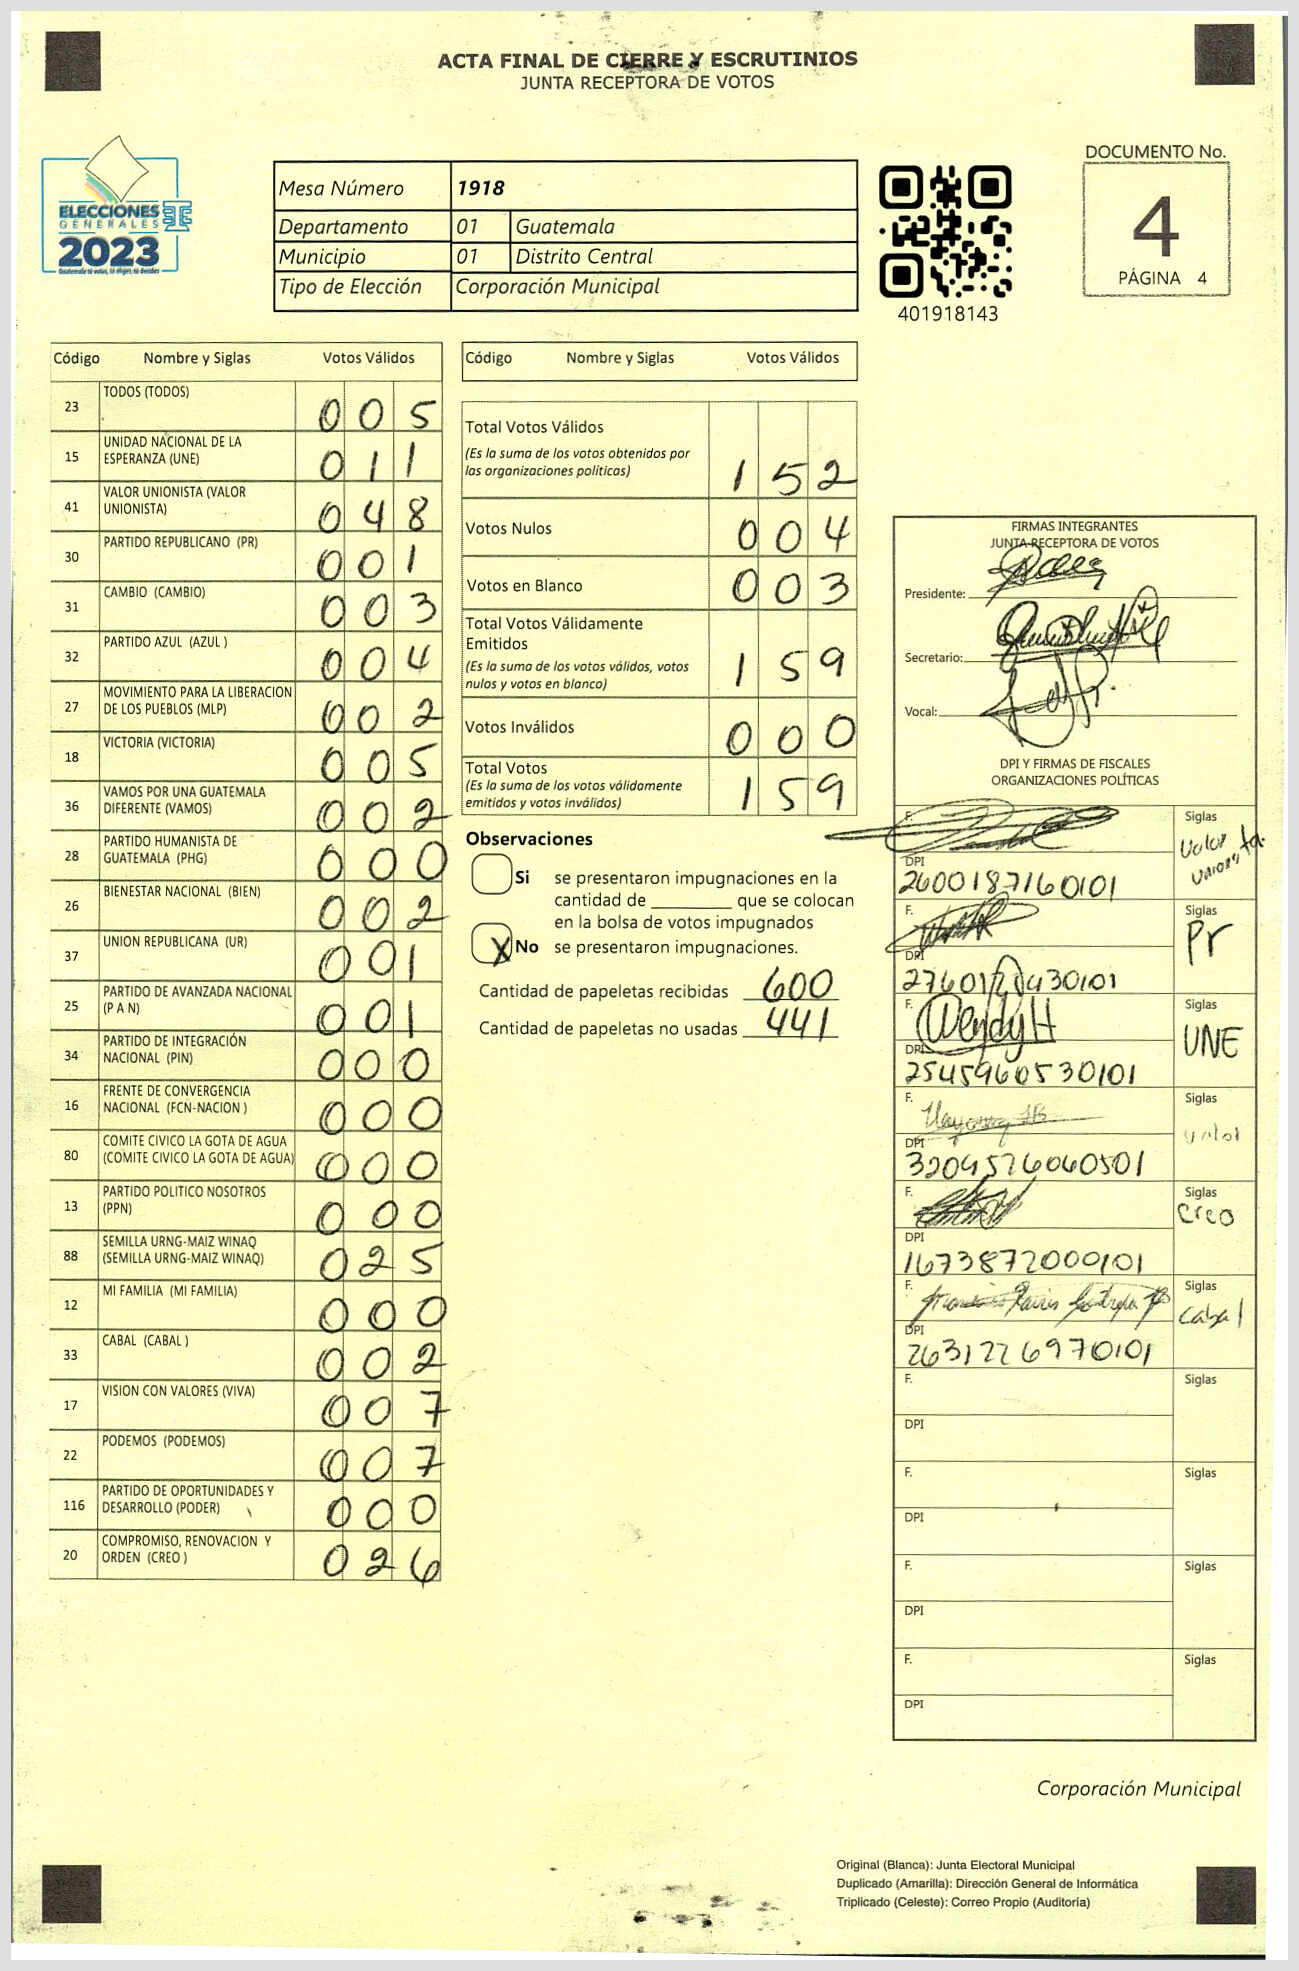 ACTA FINAL DE CIERRE Y ESCRUTINIOS
JUNTA RECEPTORA DE VOTOS
ELECCIONES
GENERALES
2023
Guatemala tú votas, tú eliges, tú decides
Mesa Número 1918
Departamento 01 Guatemala
Municipio 01 Distrito Central
Tipo de Elección Corporación Municipal
401918143
DOCUMENTO No.
4
PÁGINA 4
Código Nombre y Siglas Votos Válidos
23 TODOS (TODOS) 0 0 5
15 UNIDAD NACIONAL DE LA
ESPERANZA (UNE) 0 1 1
41 VALOR UNIONISTA (VALOR
UNIONISTA) 0 4 8
30 PARTIDO REPUBLICANO (PR) 0 0 1
31 CAMBIO (CAMBIO) 0 0 3
32 PARTIDO AZUL (AZUL ) 0 0 4
27 MOVIMIENTO PARA LA LIBERACION
DE LOS PUEBLOS (MLP) 0 0 2
18 VICTORIA (VICTORIA) 0 0 5
36 VAMOS POR UNA GUATEMALA
DIFERENTE (VAMOS) 0 0 2
28 PARTIDO HUMANISTA DE
GUATEMALA (PHG) 0 0 0
26 BIENESTAR NACIONAL (BIEN) 0 0 2
37 UNION REPUBLICANA (UR) 0 0 1
25 PARTIDO DE AVANZADA NACIONAL
(P A N) 0 0 1
34 PARTIDO DE INTEGRACIÓN
NACIONAL (PIN) 0 0 0
16 FRENTE DE CONVERGENCIA
NACIONAL (FCN-NACION ) 0 0 0
80 COMITE CIVICO LA GOTA DE AGUA
(COMITE CIVICO LA GOTA DE AGUA) 0 0 0
13 PARTIDO POLITICO NOSOTROS
(PPN) 0 0 0
88 SEMILLA URNG-MAIZ WINAQ
(SEMILLA URNG-MAIZ WINAQ) 0 2 5
12 MI FAMILIA (MI FAMILIA) 0 0 0
33 CABAL (CABAL ) 0 0 2
17 VISION CON VALORES (VIVA) 0 0 7
22 PODEMOS (PODEMOS) 0 0 7
116 PARTIDO DE OPORTUNIDADES Y
DESARROLLO (PODER) 0 0 0
20 COMPROMISO, RENOVACION Y
ORDEN (CREO ) 0 2 6
Código Nombre y Siglas Votos Válidos
Total Votos Válidos
(Es la suma de los votos obtenidos por
las organizaciones políticas) 1 5 2
Votos Nulos 0 0 4
Votos en Blanco 0 0 3
Total Votos Válidamente
Emitidos
(Es la suma de los votos válidos, votos
nulos y votos en blanco) 1 5 9
Votos Inválidos 0 0 0
Total Votos
(Es la suma de los votos válidamente
emitidos y votos inválidos) 1 5 9
Observaciones
Si se presentaron impugnaciones en la
cantidad de ________ que se colocan
en la bolsa de votos impugnados
X No se presentaron impugnaciones.
Cantidad de papeletas recibidas 600
Cantidad de papeletas no usadas 441
FIRMAS INTEGRANTES
JUNTA RECEPTORA DE VOTOS
Presidente:
Secretario:
Vocal:
DPI Y FIRMAS DE FISCALES
ORGANIZACIONES POLÍTICAS
F. Siglas
Valor Unionista
DPI
2600187160101
F. Siglas
Pr
DPI
F. WendyH Siglas
UNE
DPI
2545960530101
F. Siglas
Valor
DPI
3204576060501
F. Siglas
Creo
DPI
1673872000101
F. Siglas
Cabal
DPI
2631226970101
F. Siglas
DPI
F. Siglas
DPI
F. Siglas
DPI
F. Siglas
DPI
Corporación Municipal
Original (Blanca): Junta Electoral Municipal
Duplicado (Amarilla): Dirección General de Informática
Triplicado (Celeste): Correo Propio (Auditoría)